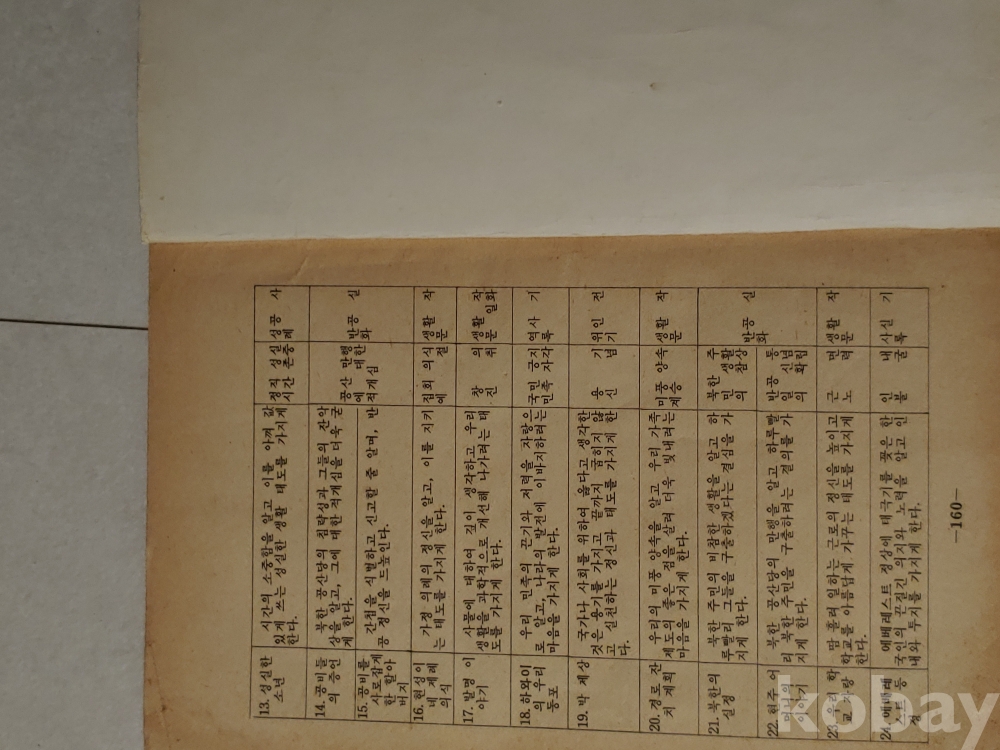 13. 성실한
소년
시간의 소중함을 알고 이를 아껴 값
있게 쓰는 성실한 생활 태도를 가지게
한다.
정직 성실
시간 존중
성공 사
례
14. 공비들
의 증언
북한 공산당의 침략상과 그들의 잔악
상을 알고, 그에 대한 적개심을 더욱 굳
게 한다.
공산 만행
에 대한
적개심
반공 실
화
15. 공비를
사로잡게
한 할아
버지
간첩을 식별하고 신고할 줄 알며, 반
공 정신을 드높인다.
16. 현성이
네 계례
의식
가정 의례의 정신을 알고, 이를 지키
는 태도를 가지게 한다.
집회 의식
예절
생활 작
문
17. 발명 이
야기
사물에 대하여 깊이 생각하고 우리
생활을 과학적으로 개선해 나가려는 태
도를 가지게 한다.
창의
진취
생활 작
문 일화
18. 하와이
의 우리
동포
우리 민족의 끈기와 저력을 자랑으
로 알고, 나라의 발전에 이바지하려는
마음을 가지게 한다.
국민 긍지
민족 자각
역사 기
19. 박 제상
국가나 사회를 위하여 옳다고 생각한
것은 용기를 가지고 끝까지 굽히지 않
고 실천하는 정신과 태도를 가지게 한
다.
용기
신념
위인 전
기
20. 경로 잔
치 계획
우리의 미풍 양속을 알고 우리 가족
제도의 좋은 점을 살려 더욱 빛내려는
마음을 가지게 한다.
미풍 양속
계승
생활 작
문
21. 북한의
실정
북한 주민의 비참한 생활을 알고 하
루빨리 그들을 구출하겠다는 결심을 가
지게 한다.
북한 주
민의 생활
의 참상
반공 실
화
22. 현주 어
머니의
이야기
북한 공산당의 만행을 알고 하루빨
리 북한 주민을 구출하려는 결의를 가
지게 한다.
반공 통
일의 신념
확립
23. 우리 학
교 자랑
땀 흘려 일하는 근로의 정신을 높이고
학교를 아름답게 가꾸는 태도를 가지게
한다.
근면
노력
생활 작
문
24. 에베레
스트 등
정
에베레스트 정상에 태극기를 꽂은 한
국인의 끈질긴 의지와 노력을 알고 인
내와 투지를 가지게 한다.
인내
불굴
사실 기
록
—160—
kobay